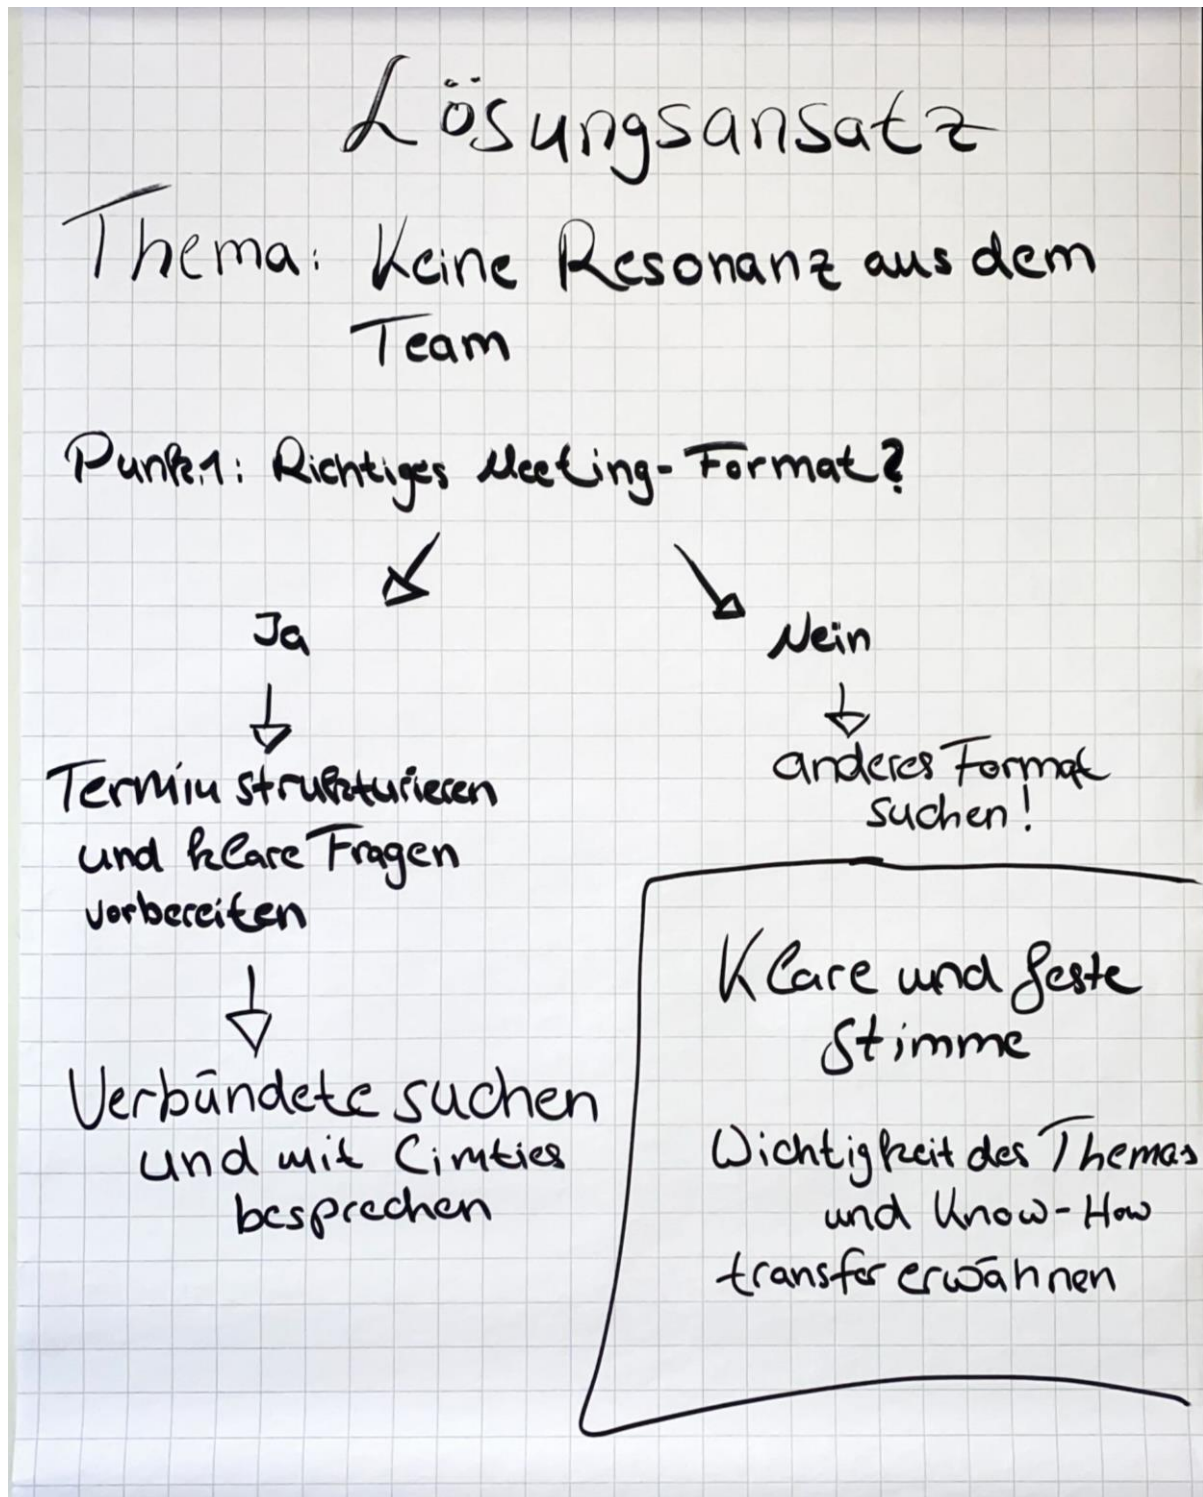 Lösungsansatz
Thema: Keine Resonanz aus dem
Team
Punkt 1: Richtiges Meeting-Format?
Ja
Nein
Termin strukturieren
und klare Fragen
vorbereiten
anderes Format
suchen!
Verbündete suchen
und mit
besprechen
Klare und feste
Stimme
Wichtigkeit des Themas
und Know-How
transfer erwähnen